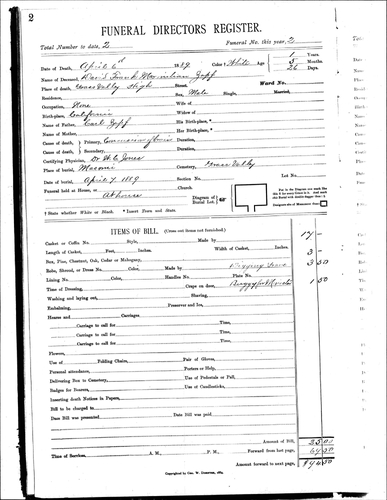 2
FUNERAL DIRECTORS REGISTER.
Total Number to date, 2 Funeral No. this year, 2
Date of Death, April 6 1889. Color † White Age 1 Years
3 Months
26 Days.
Name of Deceased, Frank Zopf
Place of death, Grass Valley Street, Ward No.
Residence, Sex, Male Single, Married,
Occupation, None Wife of
Birth-place, California Widow of
Name of Father, Carl Zopf His Birth-place,
Name of Mother, Her Birth-place,
Cause of death, Primary, Duration,
Cause of death, Secondary, Duration,
Certifying Physician, Dr Jones
Place of burial, Masonic Cemetery, Grass Valley
Date of burial, April 7 1889 Section No. Lot No.
Funeral held at House, Church.
At house
Diagram of Burial Lot
† State whether White or Black. * Insert Front and State.
ITEMS OF BILL. (Cross out items not furnished.)
Casket or Coffin No. Style, Made by 17 -
Length of Casket, Feet, Inches. Width of Casket, Inches. 3 -
Box, Pine, Chestnut, Oak, Cedar or Mahogany, Digging Grave 3 50
Robe, Shroud, or Dress No. Color, Made by
Lining No. Color, Handles No.
Time of Dressing, Crape on door, Buggy 1 50
Washing and laying out, Shaving,
Embalming, Preserver and Ice,
Hearse and Carriages.
Carriage to call for Time,
Carriage to call for Time,
Carriage to call for Time,
Carriage to call for Time,
Flowers,
Use of Folding Chairs, Pair of Gloves,
Personal attendance, Porters or Help,
Delivering Box to Cemetery, Use of Pedestals or Pall,
Badges for Bearers, Use of Candlesticks,
Inserting death Notices in Papers,
Bill to be charged to
Date Bill was presented Date Bill was paid
Amount of Bill, 25 00
Forward from last page,
Time of Services A. M., P. M., Amount forward to next page,